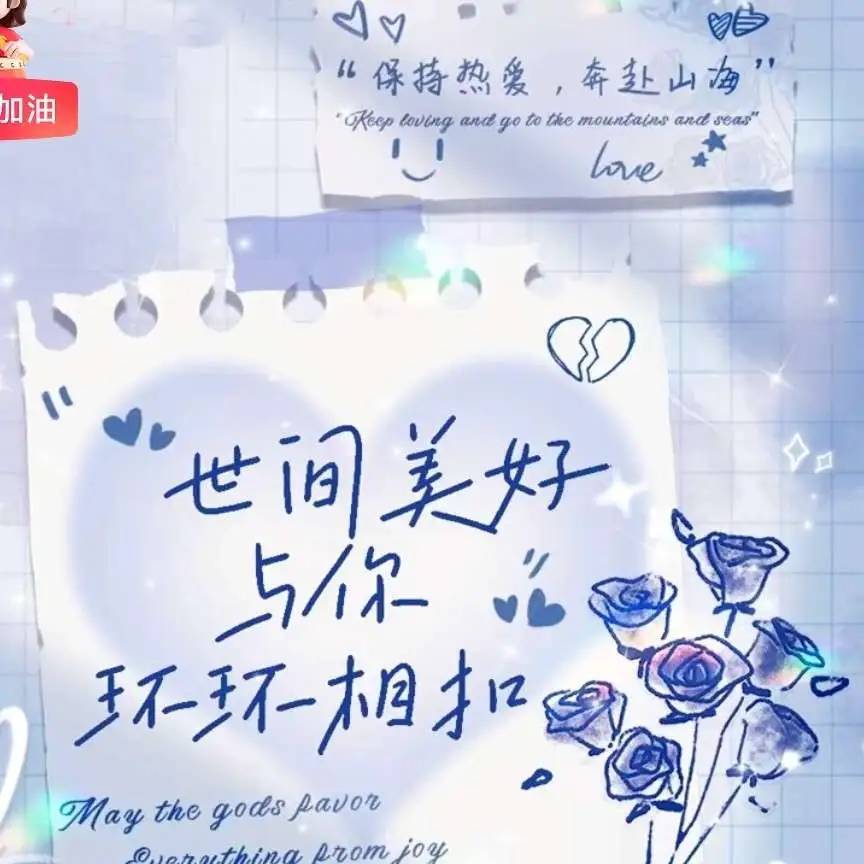 加油
“保持热爱，奔赴山海”
"Keep loving and go to the mountains and seas"
love
世间美好
与你
环环相扣
May the gods pavor
Everything prom joy